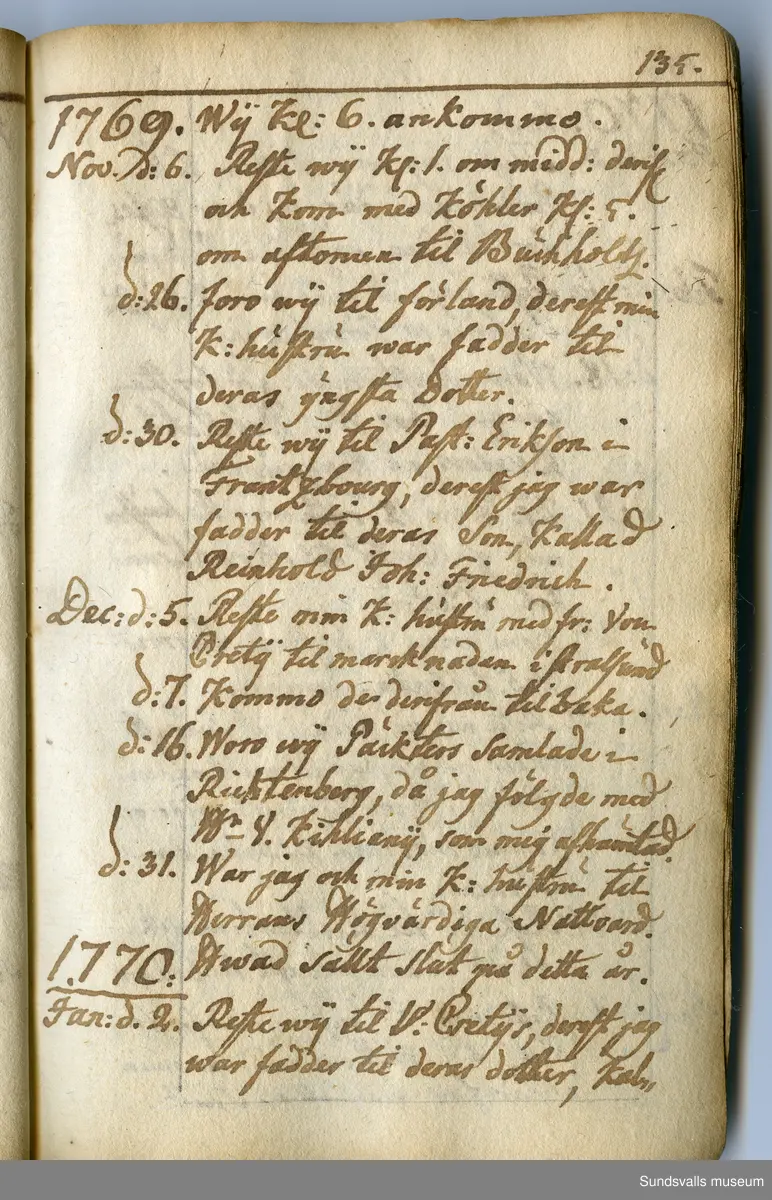 135.
1769. Wÿ Kl: 6. ankommo.
Nov. D: 6. Reste wÿ Kl: 1. om midd: derifr
och Kom med Köhler Kl: 5.
om aftonen til Buchholtz.
d: 26. foro wÿ til förland, derest min
K: hustru war fadder til
deras ÿngsta Dotter.
d: 30. Reste wÿ til Past: Erikson i
Frantzbourg, derest jag war
fadder til deras Son, Kallad
Reinhold Joh: Friedrich.
Dec: d: 5. Reste min K: hustru med fr: Von
Pretÿ til marcknaden i Stralsund
d: 7. Kommo de derifrån tilbaka.
d: 16. Woro wÿ Päckters samlade i
Richtenberg, då jag fölgde med
Hr V. Kihlianÿ, som mig afhämtad.
d: 31. War jag och min K: hustru til
Herrans Högvärdiga Nattvard.
Hwad sält slut på detta år.
1770:
Jan: d. 2. Reste wÿ til V: Pretÿs, derest jag
war fadder til deras dotter, Kal„
Sundsvalls museum